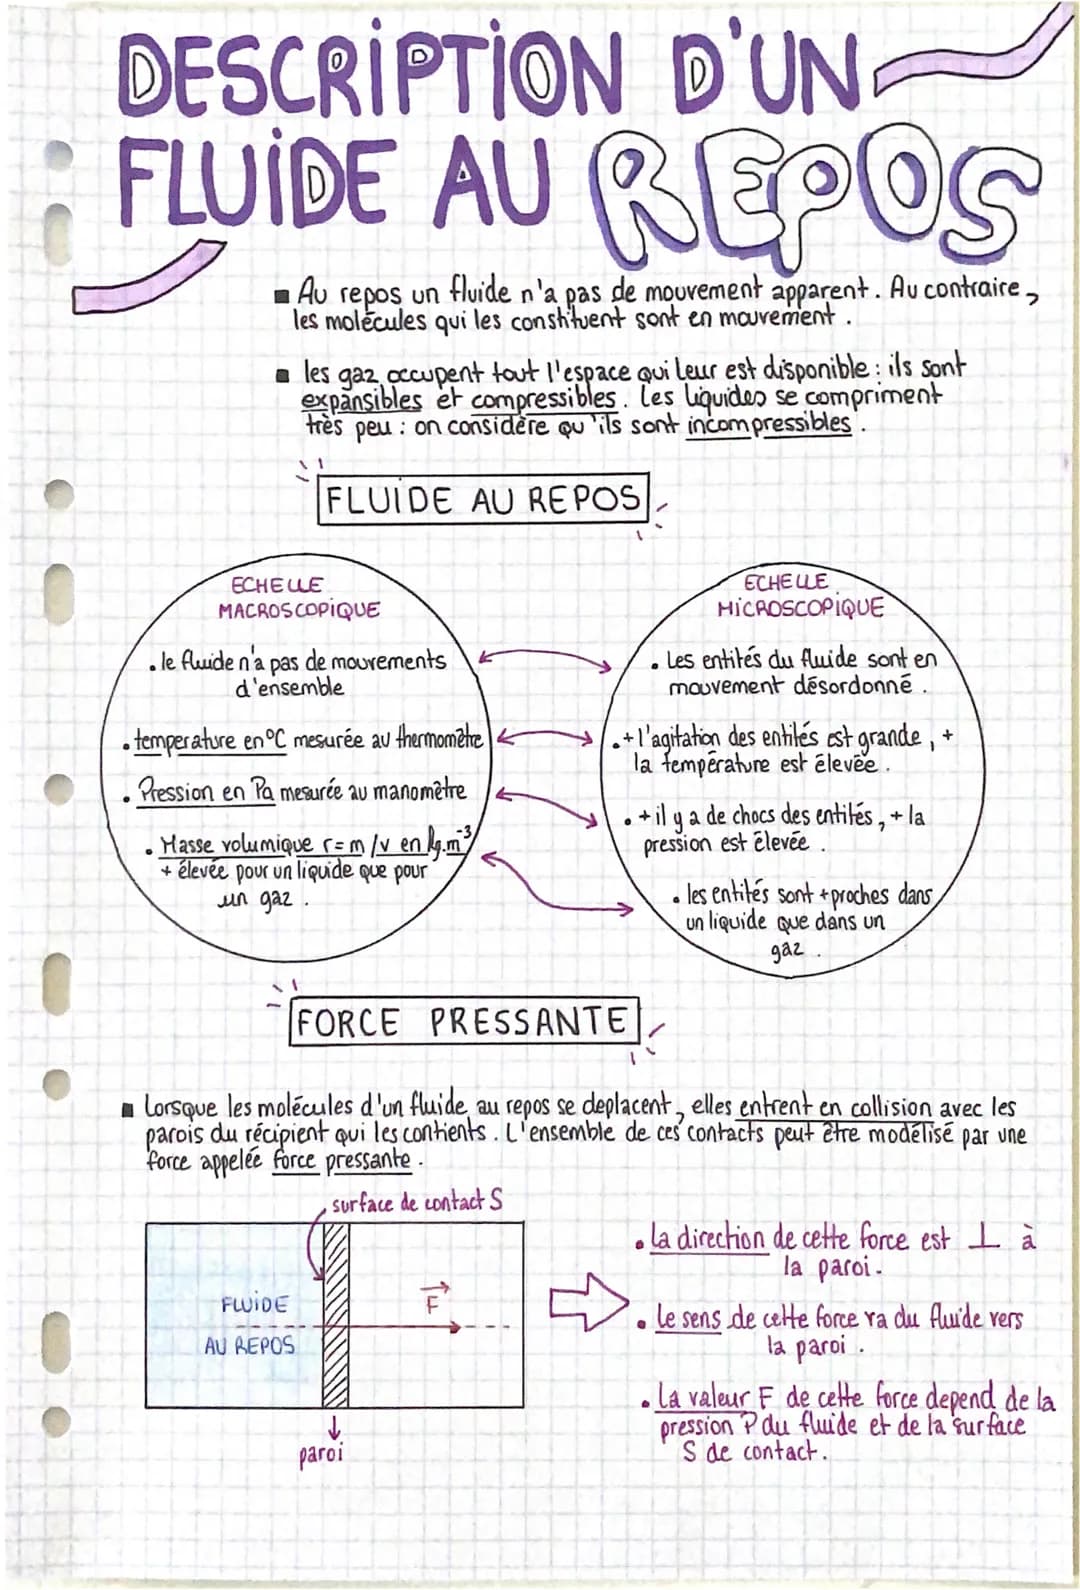 DESCRIPTION D'UN
FLUIDE AU REPOS
▪ Au repos un fluide n'a pas de mouvement apparent. Au contraire,
les molécules qui les constituent sont en mouvement.
▪ les gaz occupent tout l'espace qui leur est disponible : ils sont
expansibles et compressibles. Les liquides se compriment
très peu : on considère qu'ils sont incompressibles.
FLUIDE AU REPOS
ECHELLE
MACROSCOPIQUE
. le fluide n'a pas de mouvements
d'ensemble
. temperature en °C mesurée au thermomètre
. Pression en Pa mesurée au manomètre
. Masse volumique r = m / v en kg.m⁻³
+ élevée pour un liquide que pour
un gaz.
ECHELLE
MICROSCOPIQUE
. Les entités du fluide sont en
mouvement désordonné.
. + l'agitation des entités est grande, +
la température est élevée.
. + il y a de chocs des entités, + la
pression est élevée.
. les entités sont + proches dans
un liquide que dans un
gaz.
FORCE PRESSANTE
▪ Lorsque les molécules d'un fluide au repos se deplacent, elles entrent en collision avec les
parois du récipient qui les contients. L'ensemble de ces contacts peut être modélisé par une
force appelée force pressante.
surface de contact S
FLUIDE
AU REPOS
F
paroi
. La direction de cette force est ⊥ à
la paroi.
. Le sens de cette force va du fluide vers
la paroi.
. La valeur F de cette force depend de la
pression P du fluide et de la surface
S de contact.